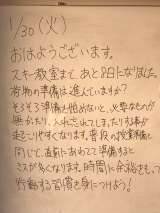 1/30(火)
おはようございます。
スキー教室まで、あと8日になりました。
荷物の準備は進んでいますか?
そろそろ準備を始めないと、必要なものが
無かったり、入れ忘れてしまったりする事が
起こりやすくなります。普段の授業準備と
同じで、直前にあわてて準備すると
ミスが多くなります。時間に余裕をもって
行動する習慣を身につけよう!